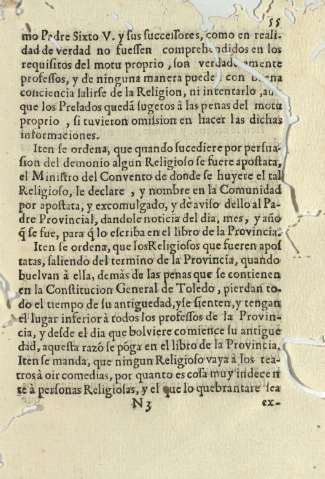 55
mo Padre Sixto V. y sus successores, como en reali-
dad de verdad no fuessen comprehendidos en los
requisitos del motu proprio, son verdaderamente
professos, y de ninguna manera pueden con buena
conciencia salirse de la Religion, ni intentarlo, au
que los Prelados quedã sugetos à las penas del motu
proprio, si tuvieron omision en hacer las dichas
informaciones.
Iten se ordena, que quando sucediere por persua-
sion del demonio algun Religioso se fuere apostata,
el Ministro del Convento de donde se huyere el tal
Religioso, le declare, y nombre en la Comunidad
por apostata, y excomulgado, y de aviso dello al Pa-
dre Provincial, dandole noticia del dia, mes, y año
q̃ se fue, para q̃ lo escriba en el libro de la Provincia.
Iten se ordena, que los Religiosos que fueren apos
tatas, saliendo del termino de la Provincia, quando
buelvan à ella, demàs de las penas que se contienen
en la Constitucion General de Toledo, pierdan to-
do el tiempo de su antiguedad, y se sienten, y tengan
el lugar inferior à todos los professos de la Provin-
cia, y desde el dia que bolviere comience su antigue
dad, aquesta razõ se põga en el libro de la Provincia.
Iten se manda, que ningun Religioso vaya à los tea-
tros à oir comedias, por quanto es cosa muy indecen
te à personas Religiosas, y el que lo quebrantare sea
N 3 ex-